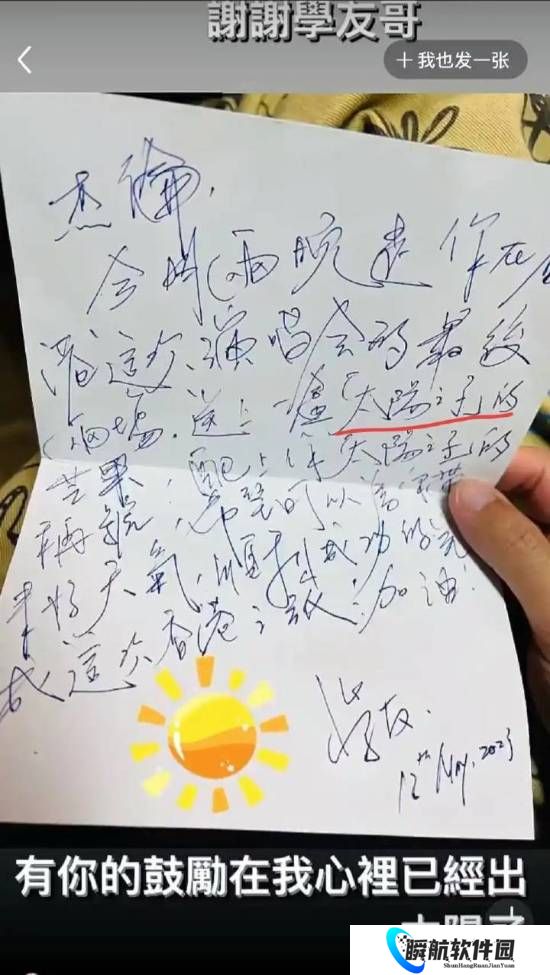 謝謝學友哥
+ 我也发一张
杰倫,
今明兩晚是你在
港這次演唱会的最後
兩場,送上一盒「太陽之子的
苹果」,配上你「太陽之子的
稱號」,希望可以為你帶
來好天氣,順利成功的完
成這次香港之旅!加油!
学友.
12th May. 2023
有你的鼓勵在我心裡已經出
太陽了
瞬航软件园
ShunHangRuanJianYuan